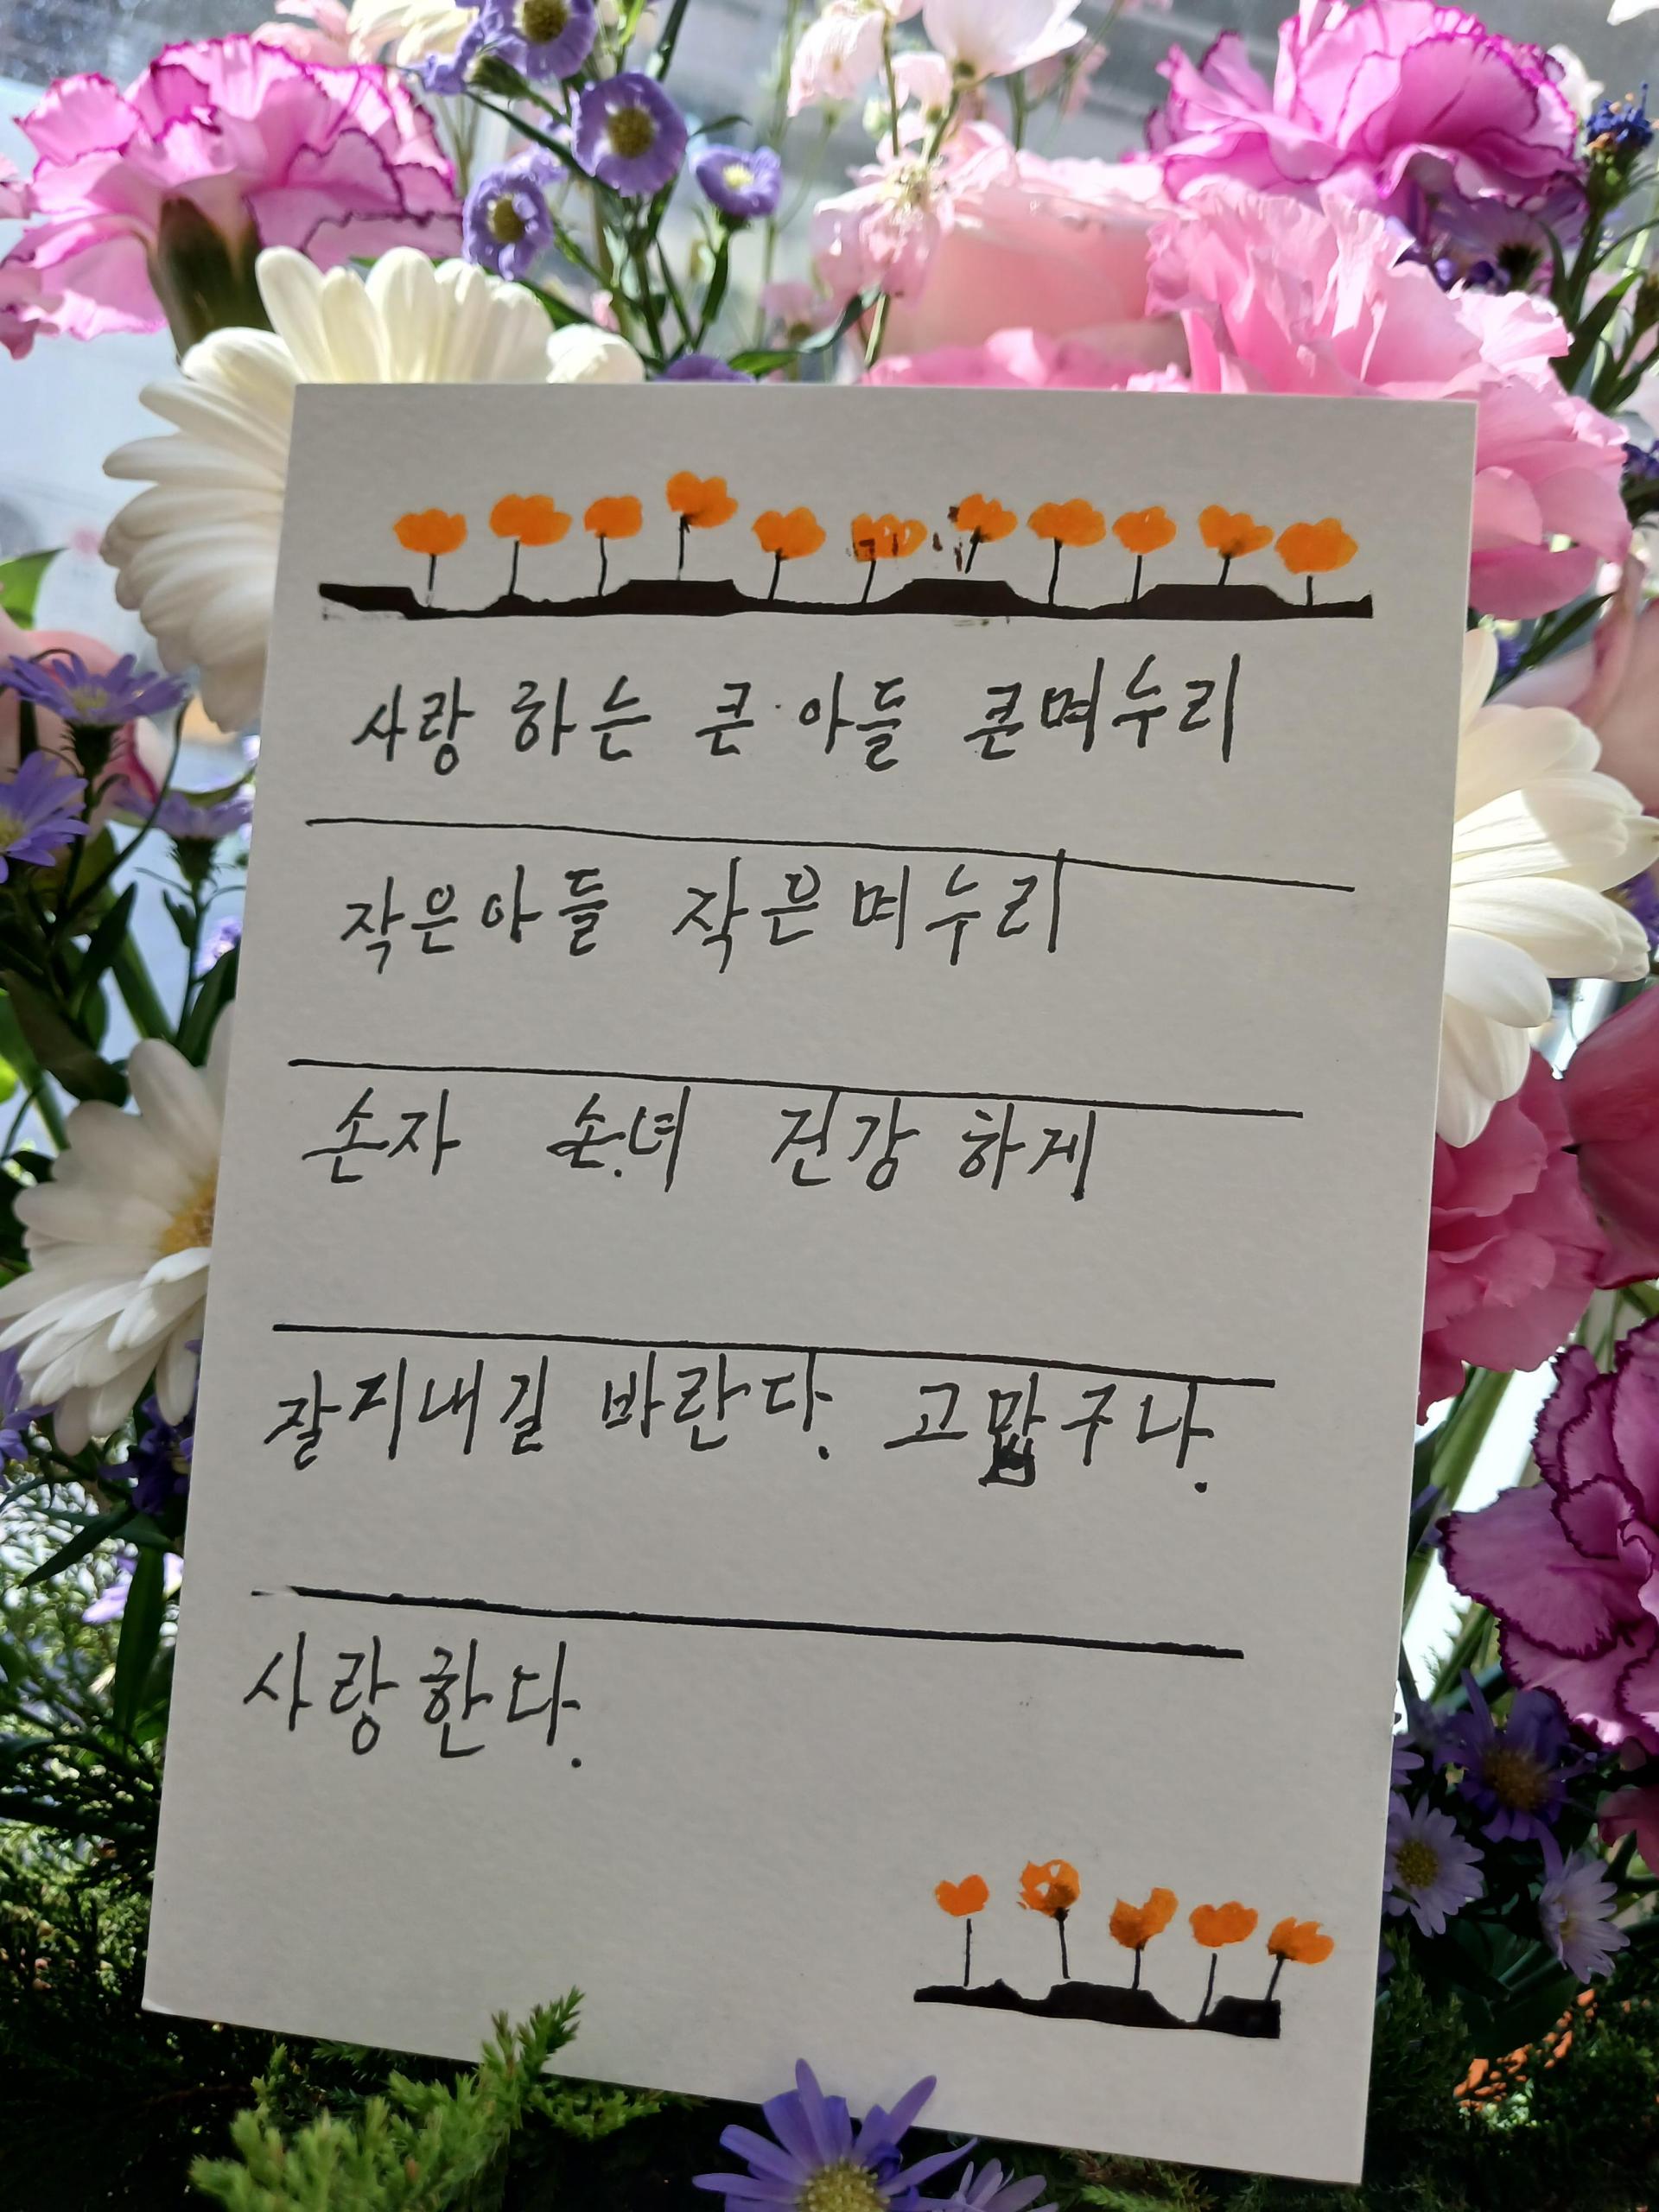 사랑 하는 큰 아들 큰며누리
작은아들 작은며누리
손자 손녀 건강 하게
잘지내길 바란다. 고맙구나.
사랑한다.